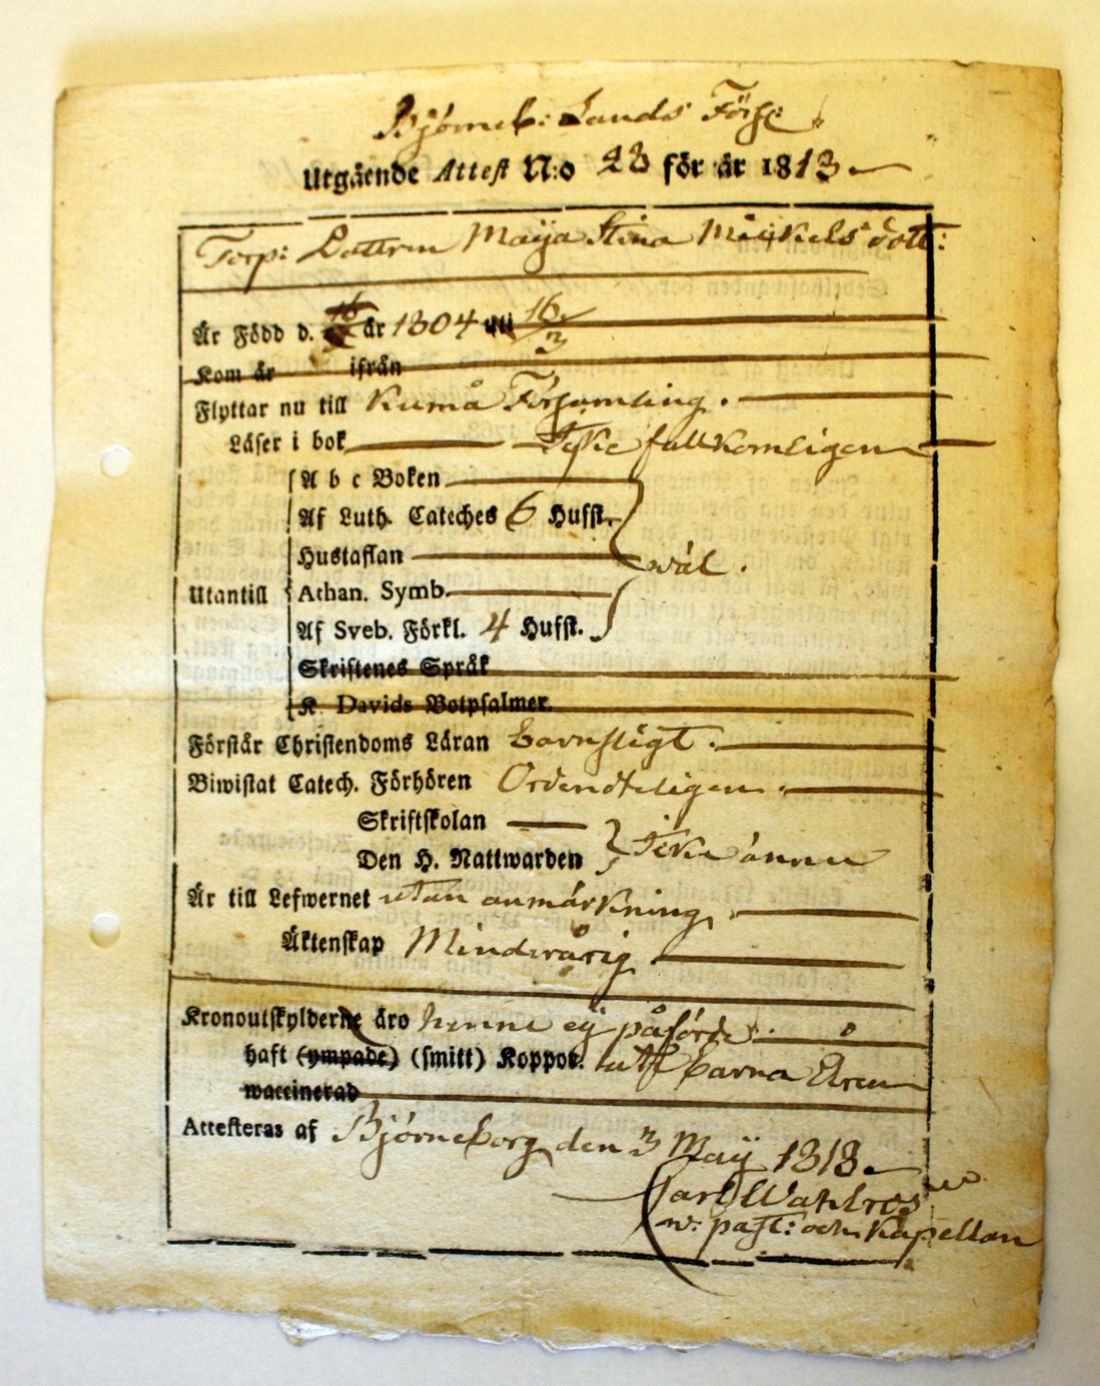 Björneb: Lands Förs:
Utgående Attest N:o 28 för år 1818
Torp: Dottren Maija Stina Mickels dott:
Är Född d. år 1804 16/3
Kom år ifrån
Flyttar nu till Kumå Församling.
Läser i bok Icke fullkomligen
A b c Boken
Af Luth. Cateches 6 Hufst.
Hustaflan wäl.
Utantill Athan. Symb.
Af Sveb. Förkl. 4 Hufst.
Skriftenes Språk
K. Davids Botpsalmer.
Förstår Christendoms Läran barnsligt.
Biwistat Catech. Förhören Ordenteligen.
Skriftskolan
Den H. Nattwarden Icke ännu
Är till Lefwernet utan anmärkning
Äktenskap Minderårig
Kronoutskylderne äro henne ej påförde. 0
haft (ympade) (smitt) Koppor. uti barna Åren
waccinerad
Attesteras af Björneborg den 3 Maij 1818
Carl Wahlroos
w: past: och Kapellan